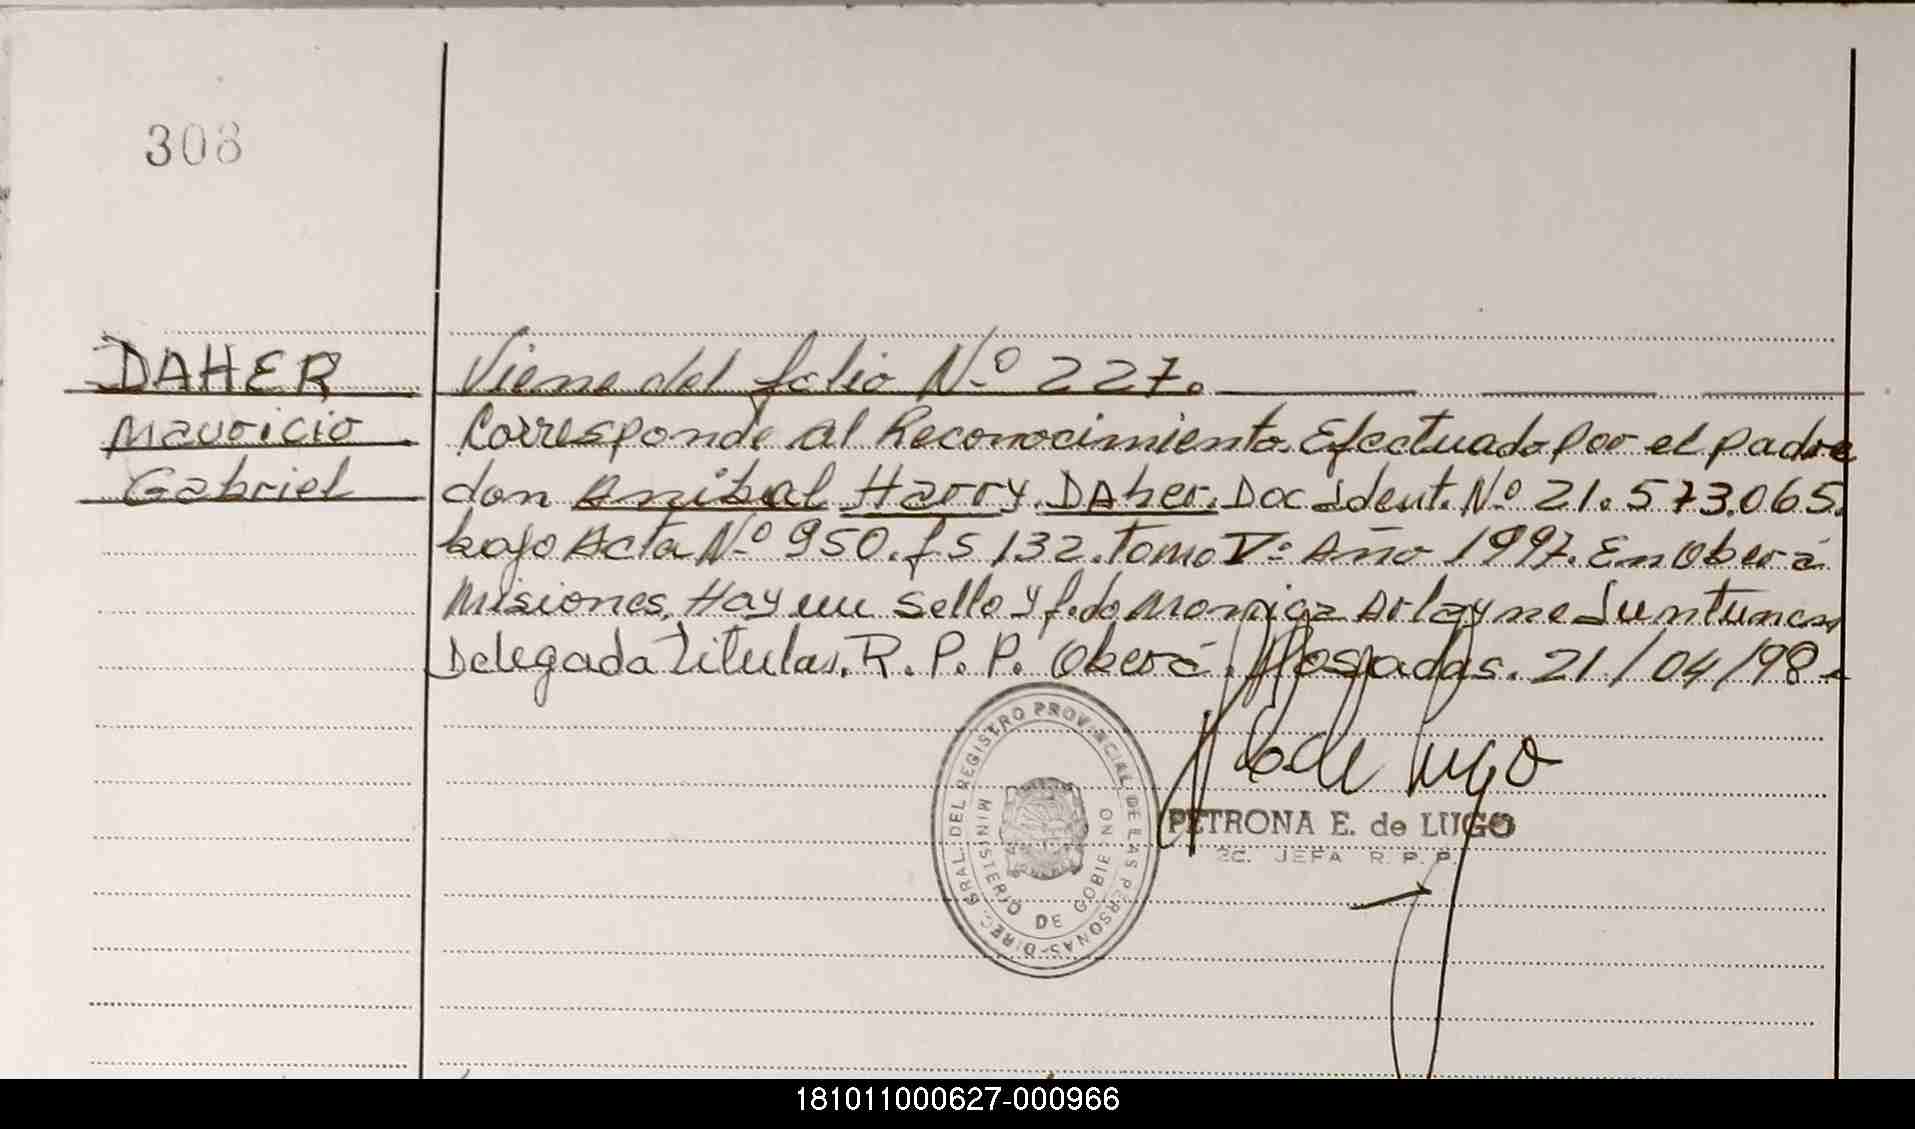 308
DAHER
Mauricio
Gabriel
Viene del folio Nº 227.
Corresponde al Reconocimiento. Efectuado por el padre
don Anibal Harry. DAher. Doc Ident. Nº 21.573.065.
bajo Acta Nº 950. fs 132. Tomo Vº Año 1997. En Oberá
Misiones. Hay un sello y fdo Monica Arlayne
Delegada titular. R. P. P. Oberá. Posadas. 21/04/98
DIREC. GRAL. DEL REGISTRO PROVINCIAL DE LAS PERSONAS
MINISTERIO DE GOBIERNO
de Lugo
PETRONA E. de LUGO
JEFA R. P. P.
181011000627-000966